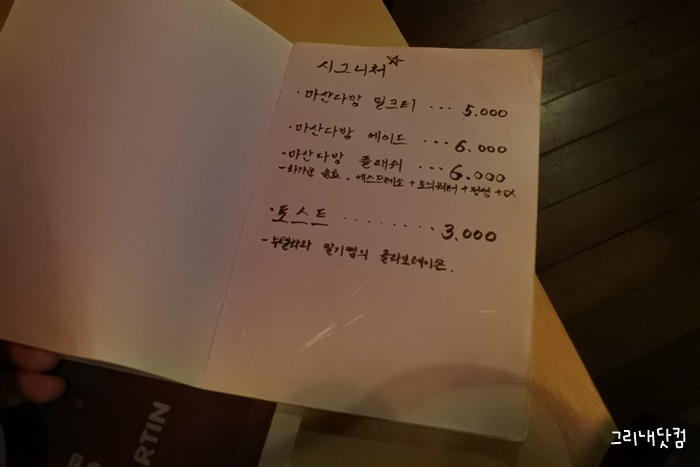 시그니처☆
· 마산다방 밀크티 ... 5.000
· 마산다방 에이드 ... 6.000
· 마산다방 플래쉬 ... 6.000
- 차가운 음료. 에스프레소 + 토닉워터 + 정성 + α
· 토스트 ........ 3.000
- 누텔라와 딸기쨈의 콜라보레이션.
MARTIN
그리내닷컴